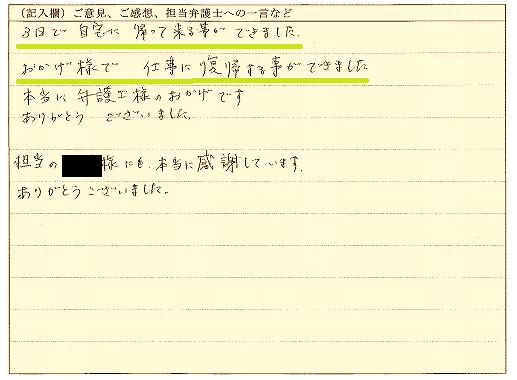 （記入欄）ご意見、ご感想、担当弁護士への一言など
3日で 自宅に 帰って来る事が できました。
おかげ様で 仕事に復帰する事ができました
本当に 弁護士様のおかげです
ありがとう ございました。
担当の 様にも、本当に感謝しています。
ありがとうございました。